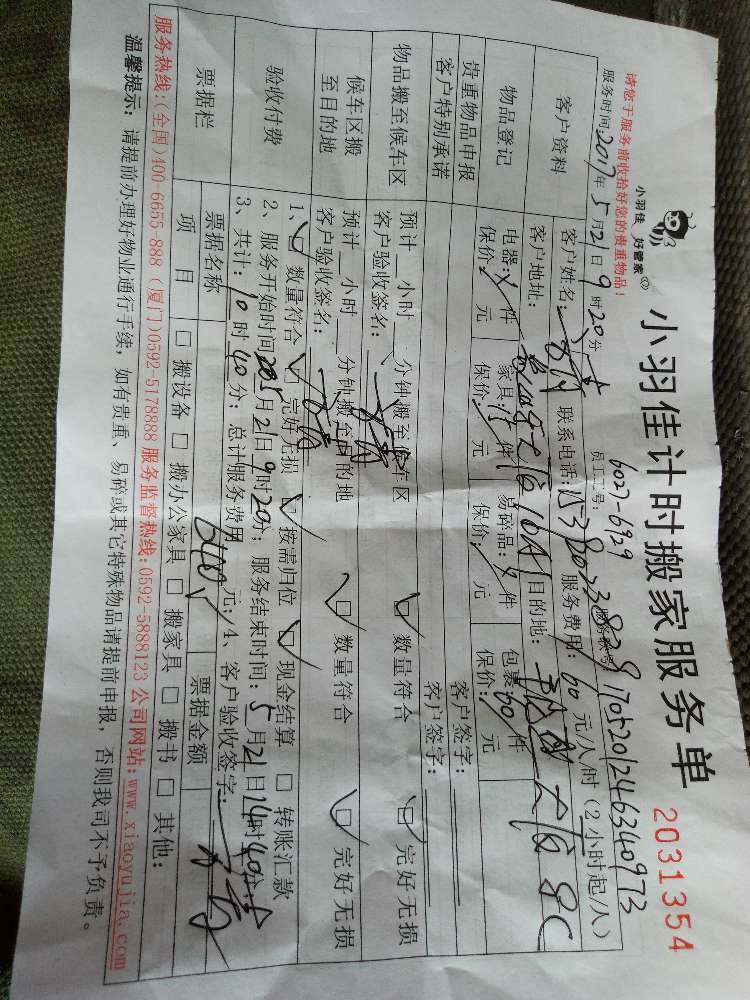 小羽佳 好管家
小羽佳计时搬家服务单
2031354
请您于服务前收拾好您的贵重物品!
服务时间:2017年5月21日9时20分
员工工号:6027-6929
1705201246340973
客户资料
客户姓名: 联系电话: 服务费用:60元/人/时(2小时起/人)
客户地址: 目的地:
物品登记
电器: 件 家具: 件 易碎品: 件 包裹:60件
保价: 元 保价: 元 保价: 元 保价: 元
贵重物品申报 客户签字:
客户特别承诺 客户签字:
物品搬至候车区
预计 小时 分钟搬至候车区
客户验收签名: 数量符合 完好无损
候车区搬至目的地
预计 小时 分钟搬至目的地
客户验收签名: 数量符合 完好无损
验收付费
1、 数量符合 完好无损 按需归位 现金结算 转账汇款
2、服务开始时间: 5月21日9时20分;服务结束时间:5月21日14时40分
3、共计:10时40分;总计服务费用 元;4、客户验收签字:
票据栏
票据名称 票据金额
项目 搬设备 搬办公家具 搬家具 搬书 其他:
服务热线:(全国)400-6655-888 (厦门)0592-5178888 服务监督热线:0592-5888123 公司网站:www.xiaoyujia.com
温馨提示:请提前办理好物业通行手续,如有贵重、易碎或其它特殊物品请提前申报,否则我司不予负责。